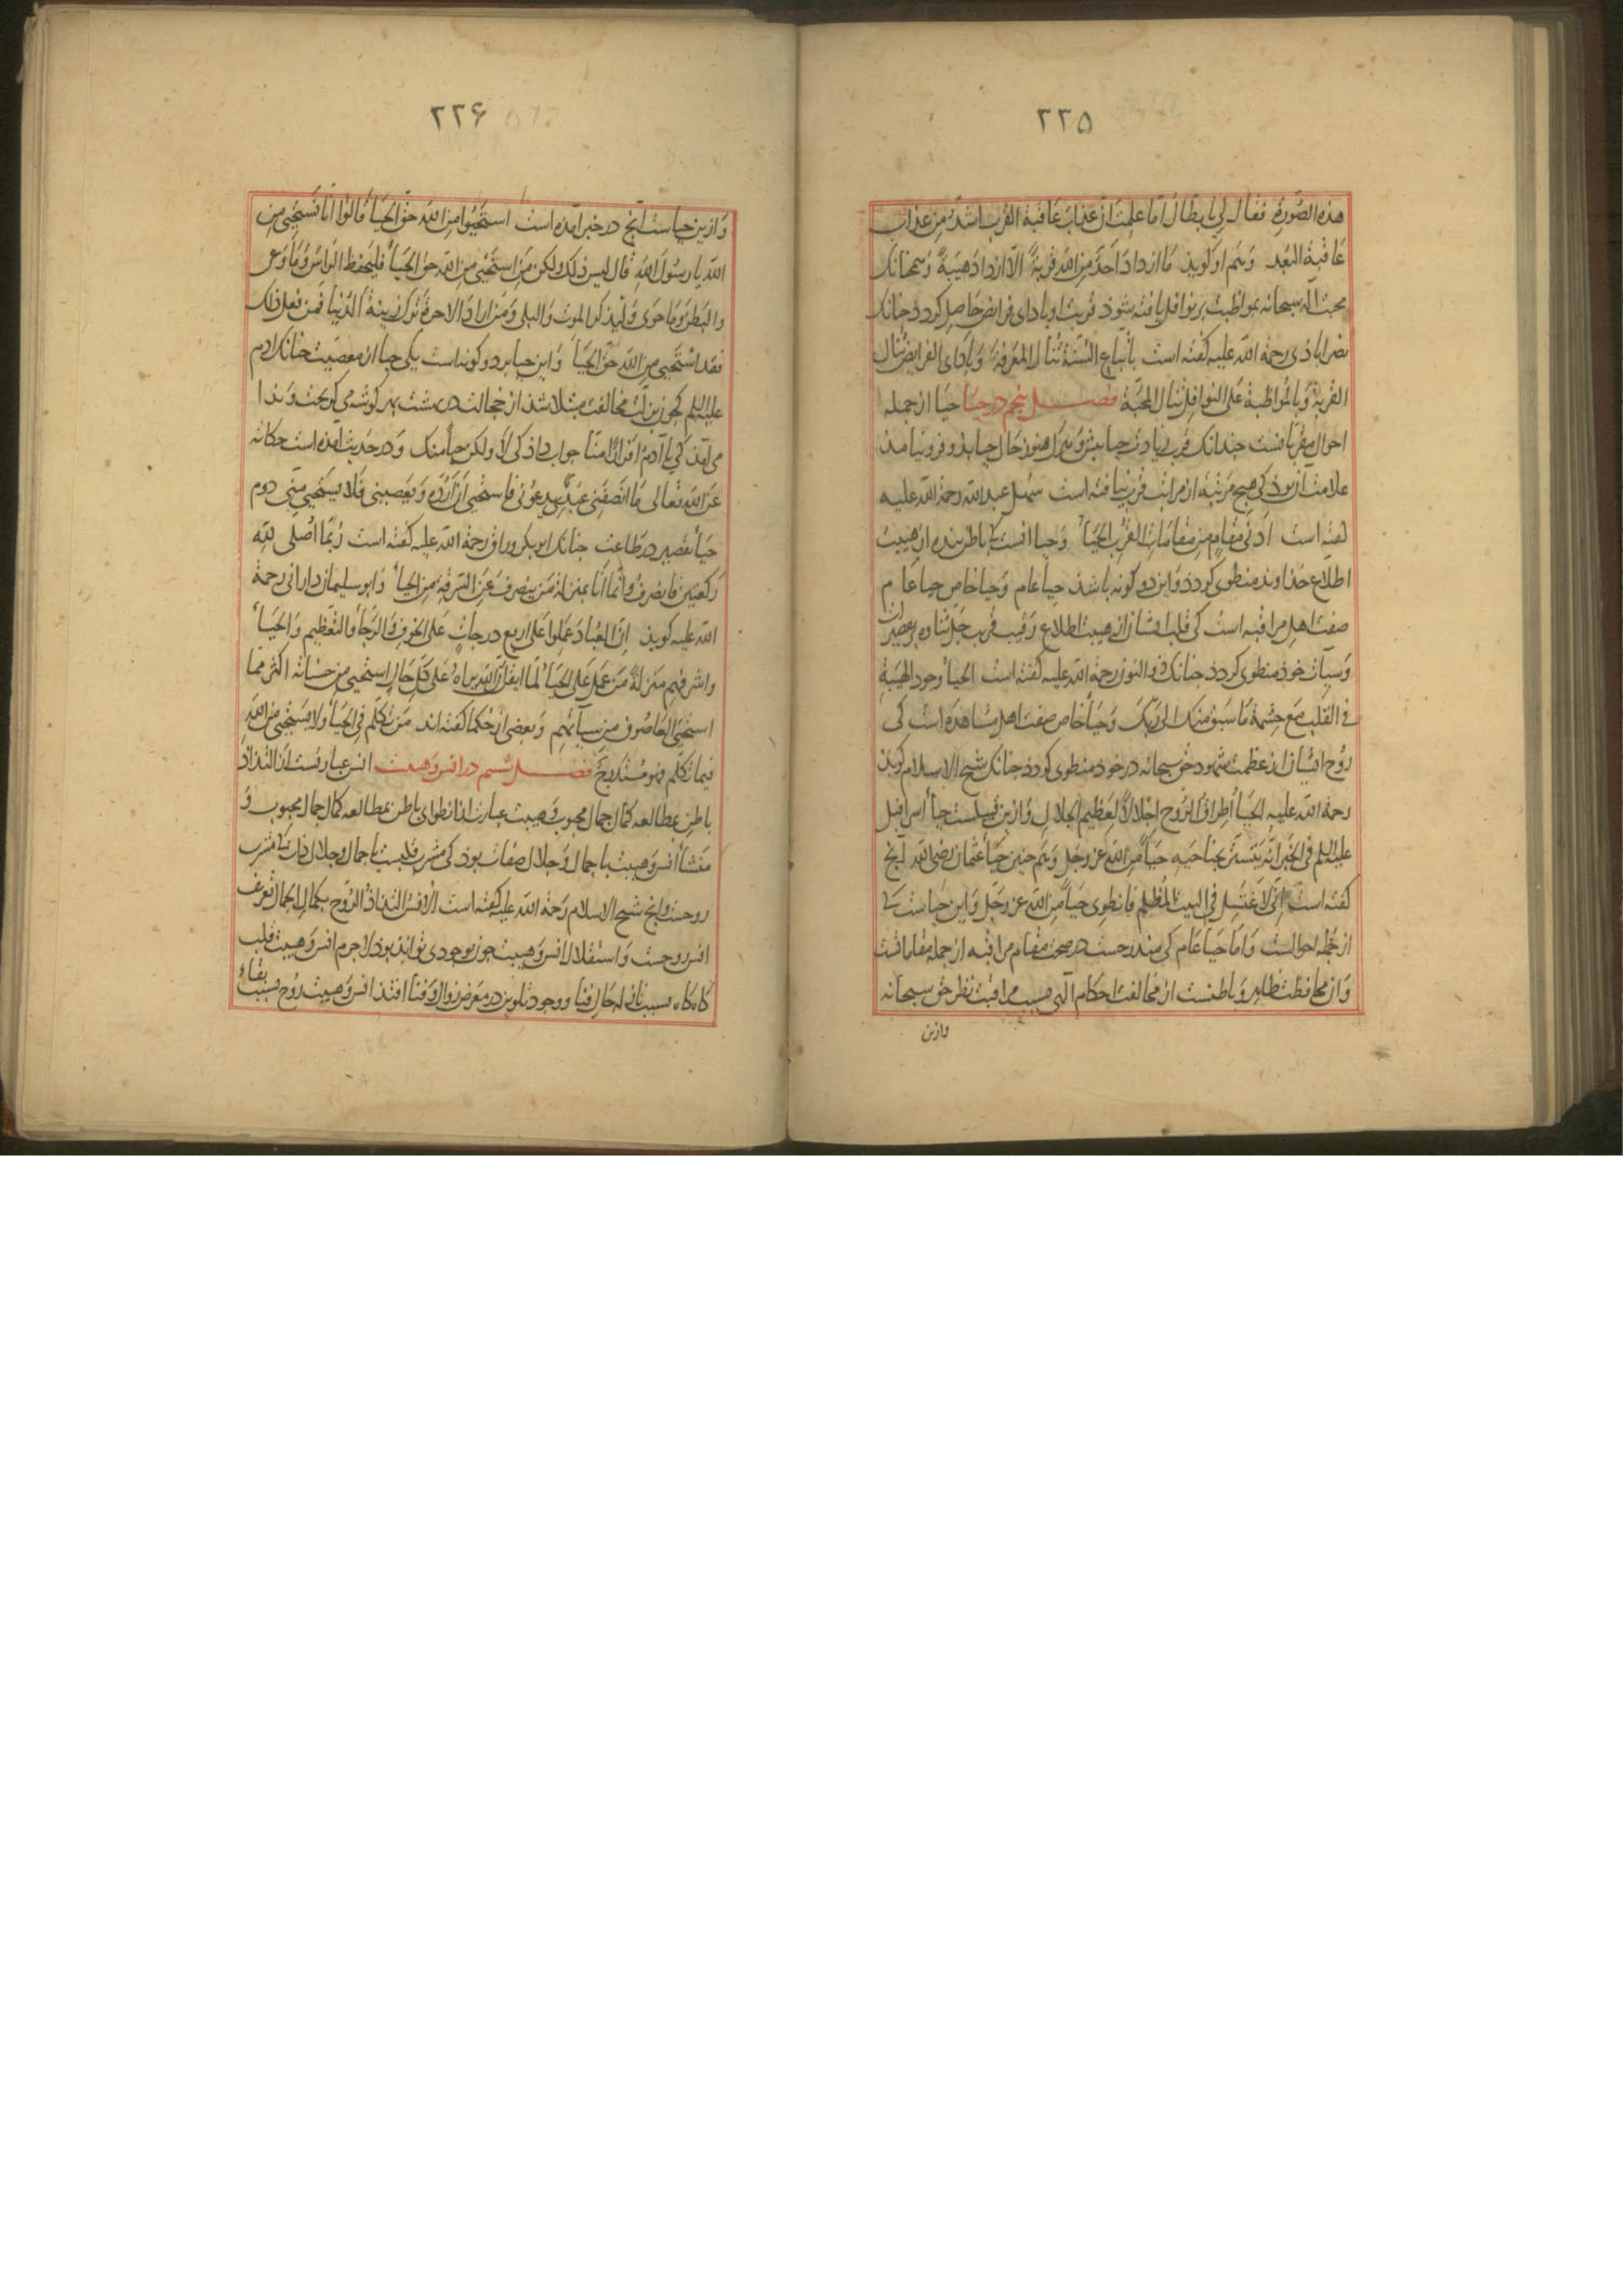 ٢٢٥
هذه الصّورة فقال لي يا بطّال أما علمت أنّ عذاب عاقبة القرب أشدّ من عذاب
عاقبة البعد وهم او کوید ما ازداد احد من الله قربة الّا ازداد هیبة وهمچنانک
محبت اله سبحانه بمواظبت بر نوافل یافته شوذ قربت او بادای فرایض حاصل کردد چنانک
نصرابادی رحمة الله علیه کفته است باتباع السنّة تنال المعرفة وبأداى الفرايض تنال
القربة وبالمواظبة على النوافل تنال المحبّة فصل پنجم در حیا حیا از جمله
احوال مقربانست چندانک قرب زیادت حیا بیش وهرک هنوز حال حیا بذو فرو نیامذ
علامت آن بوذ کی هیچ مرتبه از مراتب قرب نیافته است سهل عبد الله رحمة الله علیه
کفته است ادنى مقام من مقامات القرب الحياء وحیا انست کی باطن بنده از هیبت
اطلاع خذاوند منطوی کردد واین دو کونه باشد حیا عام وحیا خاص حیا عام
صفت اهل مراقبه است کی قلب ایشان از هیبت اطلاع رقیب قریب جلّ ثناوه بر تقصیر
وسیّات خوذ منطوی کردد چنانک ذو النون رحمة الله علیه کفته است الحياء وجود الهيبة
في القلب مع حشمة ما سبق منك الى ربّك وحیا خاص صفت اهل مشاهده است کی
روح ایشان از عظمت شهود حق سبحانه در خود منطوی کردد چنانک شیخ الاسلام کوید
رحمة الله عليه الحياء اطراق الرّوح اجلالا لعظيم الجلال وازین قبیلست حیاء اسرافیل
عليه السلم في الخبر انّه يتستّر بجناحيه حياء من الله عز وجل وهم چنین حیاء عثمان رضی الله آنچ
کفته است انّي لاغتسل في البيت المظلم فانطوى حياء من الله عز وجل واین حیاست کی
از جمله احوالست وامّا حیا عام کی مندرجست در صحت مقام مراقبه از جمله مقاماتست
وآن محافظت ظاهر وباطنست از مخالفت احکام آلهی بسبب مراقبت نظر حق سبحانه
وازین
٢٢۶
وازین حیاست آنچ در خبر آمده است استحيوا من الله حقّ الحياء قالوا انّا نستحيى من
الله يا رسول الله قال ليس ذلك ولكن من استحيى من الله حق الحياء فليحفظ الرأس وما وعى
والبطن وما حوى وليذكر الموت والبلى ومن اراد الآخرة ترك زينة الدّنيا فمن فعل ذلك
فقد استحيى من الله حقّ الحياء واین حیا بر دو کونه است یکی حیا از معصیت چنانک ادم
علیه السلم کچون بزلّت مخالفت مبتلا شد از خجالت در بهشت بهر کوشه می کریخت وندا
می آمذ کی يا آدم افرارا منّا جواب داذ کی لا ولكن حياء منك ودر حدیث آمده است حکایة
عن الله تعالى ما انصفنى عبدى يدعونى فاستحيى أن أردّه ويعصينى فلا يستحيى منّي دوم
حیاء تقصیر در طاعت چنانک ابو بکر وراق رحمة الله علیه کفته است ربّما أصلّى لله
ركعتين فانصرف وانّما انا بمنزلة من ينصرف عن السرقة من الحياء وابو سلیمان دارانی رحمة
الله علیه کوید انّ العباد عملوا على اربع درجات على الخوف والرّجاء والتعظيم والحياء
واشرفهم منزلة من عمل على الحياء لمّا ايقن انّ الله يراه على كلّ حال استحيى من حسناته اكثر ممّا
استحيى العاصون من سيّآتهم وبعضی از حکما کفته اند من تكلّم في الحياء ولا يستحيى من الله
فيما تكلّم فهو مستدرج فصل ششم در انس وهیبت انس عبارتست از التذاذ
باطن بمطالعه کمال جمال محبوب وهیبت عبارت از انطوای باطن بمطالعه کمال جلال محبوب و
منشأ انس وهیبت یا جمال وجلال صفات بود کی مشرب قلبست یا جمال وجلال ذات کی مشرب
روحست وآنچ شیخ الاسلام رحمة الله علیه کفته است الانس التذاذ الرّوح بكمال الجمال تعریف
انس روحست واستقلال انس وهیبت چون بوجودی تواند بود لاجرم انس وهیبت قلب
کاه کاه بسبب حال فنا ووجود تلوین در معرض زوال وفنا افتد انس وهیبت روح بسبب بقاء